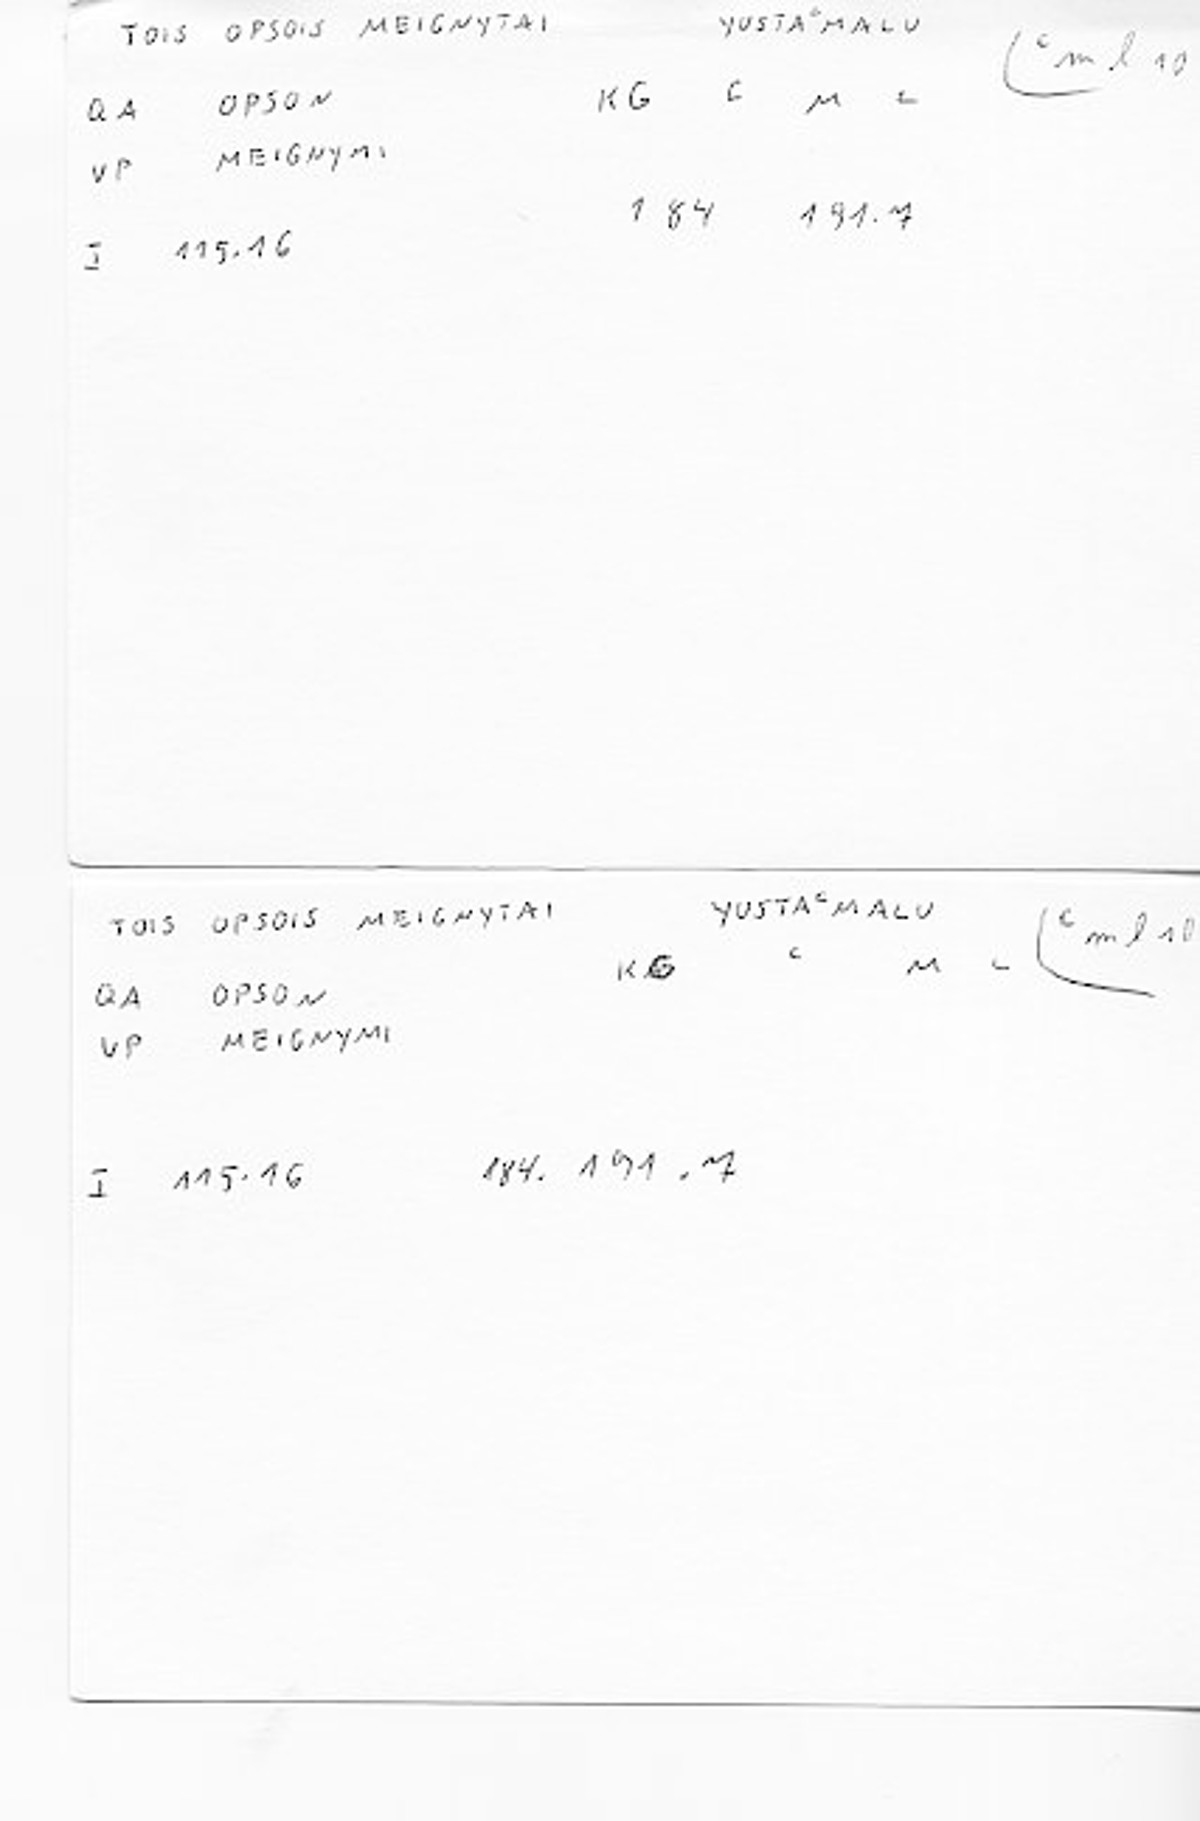 TOIS OPSOIS MEIGNYTAI YUSTAᶜMALU (ᶜ m l 10
QA OPSON KG C M L
VP MEIGNYMI
184 191.7
I 115.16
TOIS OPSOIS MEIGNYTAI YUSTAᶜMALU (ᶜ m l 10
KG C M L
QA OPSON
VP MEIGNYMI
I 115.16 184. 191.7